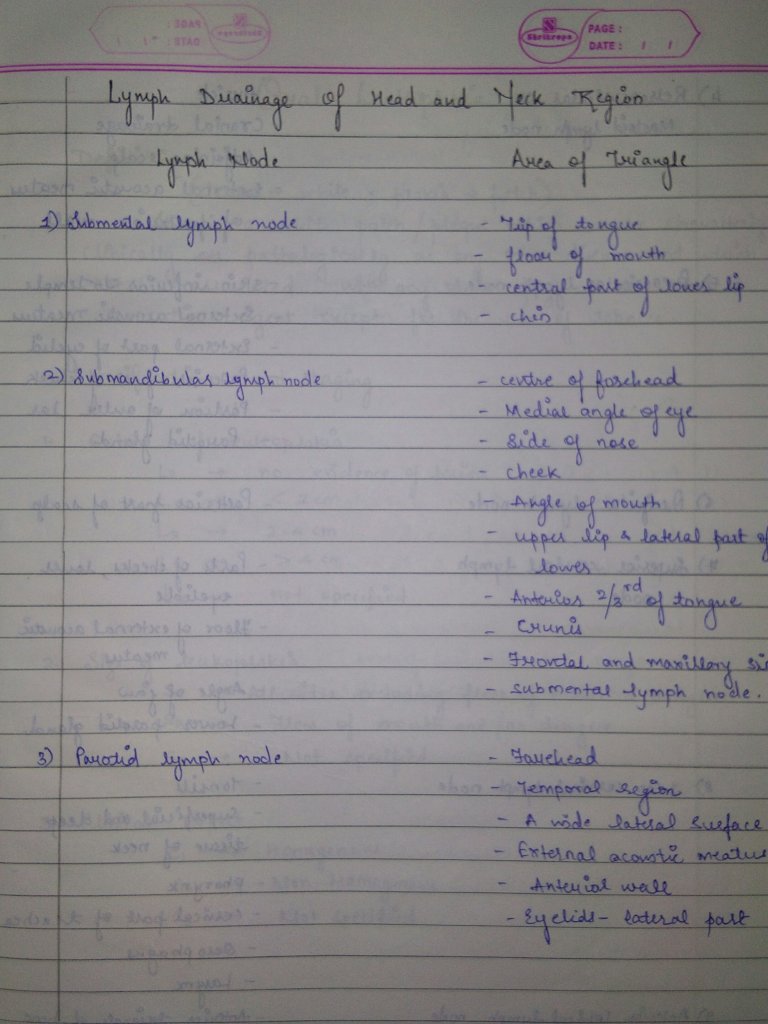 Shribropa
PAGE :
DATE : / /
Lymph Drainage of Head and Neck Region
Lymph Node Area of Triangle
1) Submental lymph node - Tip of tongue
- floor of mouth
- central part of lower lip
- chin
2) Submandibular lymph node - centre of forehead
- Medial angle of eye
- Side of nose
- cheek
- Angle of mouth
- upper lip & lateral part of
lower
- Anterior 2/3rd of tongue
-
- Frontal and maxillary si
- submental lymph node.
3) Parotid lymph node - Forehead
- Temporal region
- A wide lateral surface
- External acoustic meatus
- Anterial wall
- Eyelids - lateral part